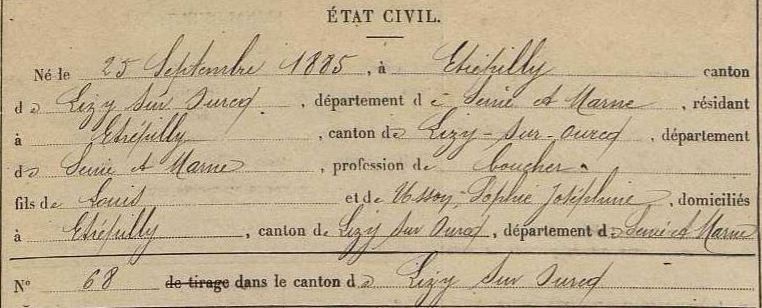 ÉTAT CIVIL.
Né le 25 Septembre 1885, à Etrépilly canton
de Lizy Sur Ourcq, département de Seine et Marne, résidant
à Etrépilly, canton de Lizy-Sur-Ourcq, département
de Seine et Marne, profession de boucher.
fils de Louis et de Sophie Joséphine, domiciliés
à Etrépilly, canton de Lizy Sur Ourcq, département de Seine et Marne
N° 68 de tirage dans le canton de Lizy Sur Ourcq